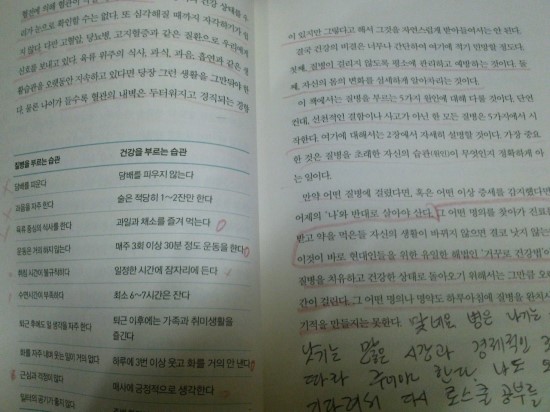 혈관에 의해 혈관이
리가 눈으로 확인할 수는 없다. 또 심각해질 때까지 자각하기가
지 않다. 다만 고혈압, 당뇨병, 고지혈증과 같은 질환으로 우리에게
신호를 보내고 있다. 육류 위주의 식사, 과식, 과음, 흡연과 같은 생
활습관을 오랫동안 지속하고 있다면 당장 그런 생활을 그만둬야 한
다. 물론 나이가 들수록 혈관의 내벽은 두터워지고 경직되는 경향
질병을 부르는 습관 건강을 부르는 습관
담배를 피운다 담배를 피우지 않는다
과음을 자주 한다 술은 적당히 1~2잔만 한다
육류 중심의 식사를 한다 과일과 채소를 즐겨 먹는다
운동은 거의 하지 않는다 매주 3회 이상 30분 정도 운동을 한다
취침 시간이 불규칙하다 일정한 시간에 잠자리에 든다
수면시간이 부족하다 최소 6~7시간은 잔다
퇴근 후에도 일 생각을 자주 한다 퇴근 이후에는 가족과 취미생활을
즐긴다
화를 자주 내며 웃는 일이 거의 없다 하루에 3번 이상 웃고 화를 거의 안 낸다
근심과 걱정이 많다 매사에 긍정적으로 생각한다
일터의 공기가 좋지 않다
이 있지만 그렇다고 해서 그것을 자연스럽게 받아들여서는 안 된다.
결국 건강의 비결은 너무나 간단하여 여기에 적기 민망할 정도다.
첫째, 질병이 걸리지 않도록 평소에 관리하고 예방하는 것이다. 둘
째, 자신의 몸의 변화를 섬세하게 알아차리는 것이다.
이 책에서는 질병을 부르는 5가지 원인에 대해 다룰 것이다. 단언
컨대, 선천적인 결함이나 사고가 아닌 한 모든 질병은 5가지에서 시
작한다. 여기에 대해서는 2장에서 자세히 설명할 것이다. 가장 중요
한 것은 질병을 초래한 자신의 습관(원인)이 무엇인지 정확하게 아
는 일이다.
만약 어떤 질병에 걸렸다면, 혹은 어떤 이상 증세를 감지했다면
어제의 '나'와 반대로 살아야 산다. 그 어떤 명의를 찾아가 진료를
받고 약을 먹은들 자신의 생활이 바뀌지 않으면 결코 낫지 않는다.
이것이 바로 현대인들을 위한 유일한 해법인 '거꾸로 건강법'이다.
질병을 치유하고 건강한 상태로 돌아오기 위해서는 그만큼 오랜
간이 걸린다. 그 어떤 명의나 명약도 하루아침에 질병을 완치시
기적을 만들지는 못한다. 맞네요 병은 나기는
낫기는 많은 시간과 경제적인
따라 주어야 한다 나도
다시 로스쿨 공부를